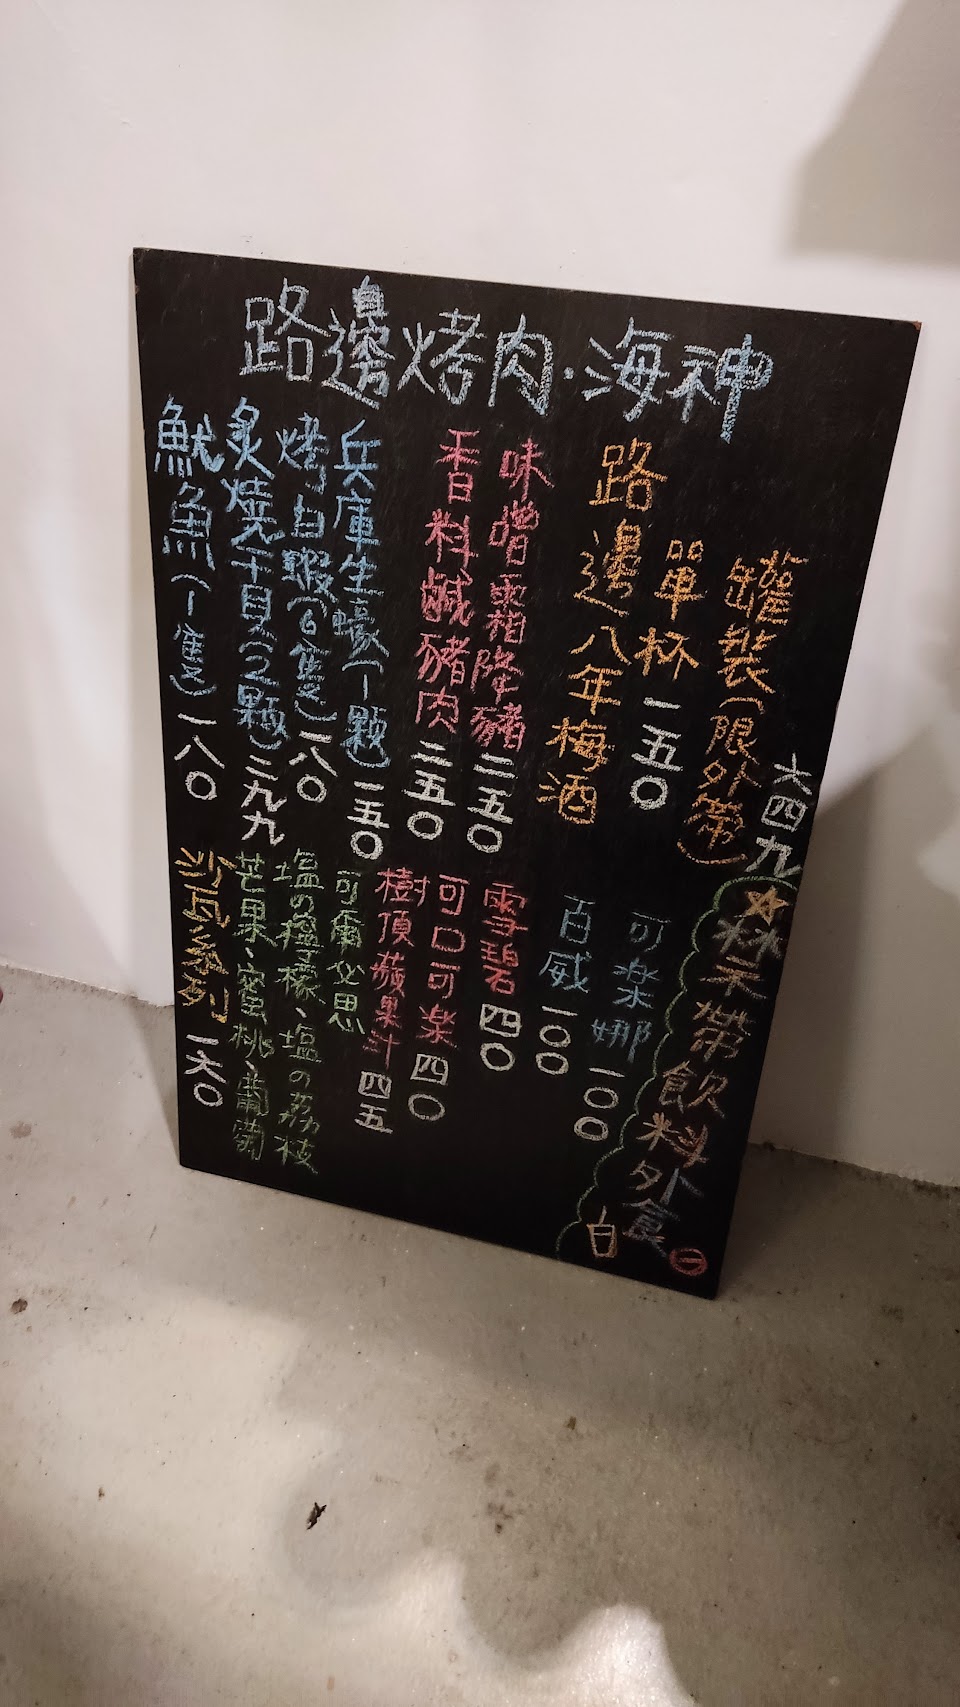 路邊烤肉·海神
魷魚(1隻)一八〇
炙燒干貝(2顆)二九九
烤白蝦(6隻)一八〇
兵庫生蠔(1顆)一五〇
香料鹹豬肉 二五〇
味噌霜降豬 二五〇
路邊八年梅酒
單杯 一五〇
罐裝(限外帶)六四九
沙瓦系列 一六〇
芒果、蜜桃、葡萄
塩の檸檬、塩の荔枝
可爾必思
樹頂蘋果汁 四五
可口可楽 四〇
雪碧 四〇
百威 一〇〇
可楽娜 一〇〇
☆禁示帶飲料外食